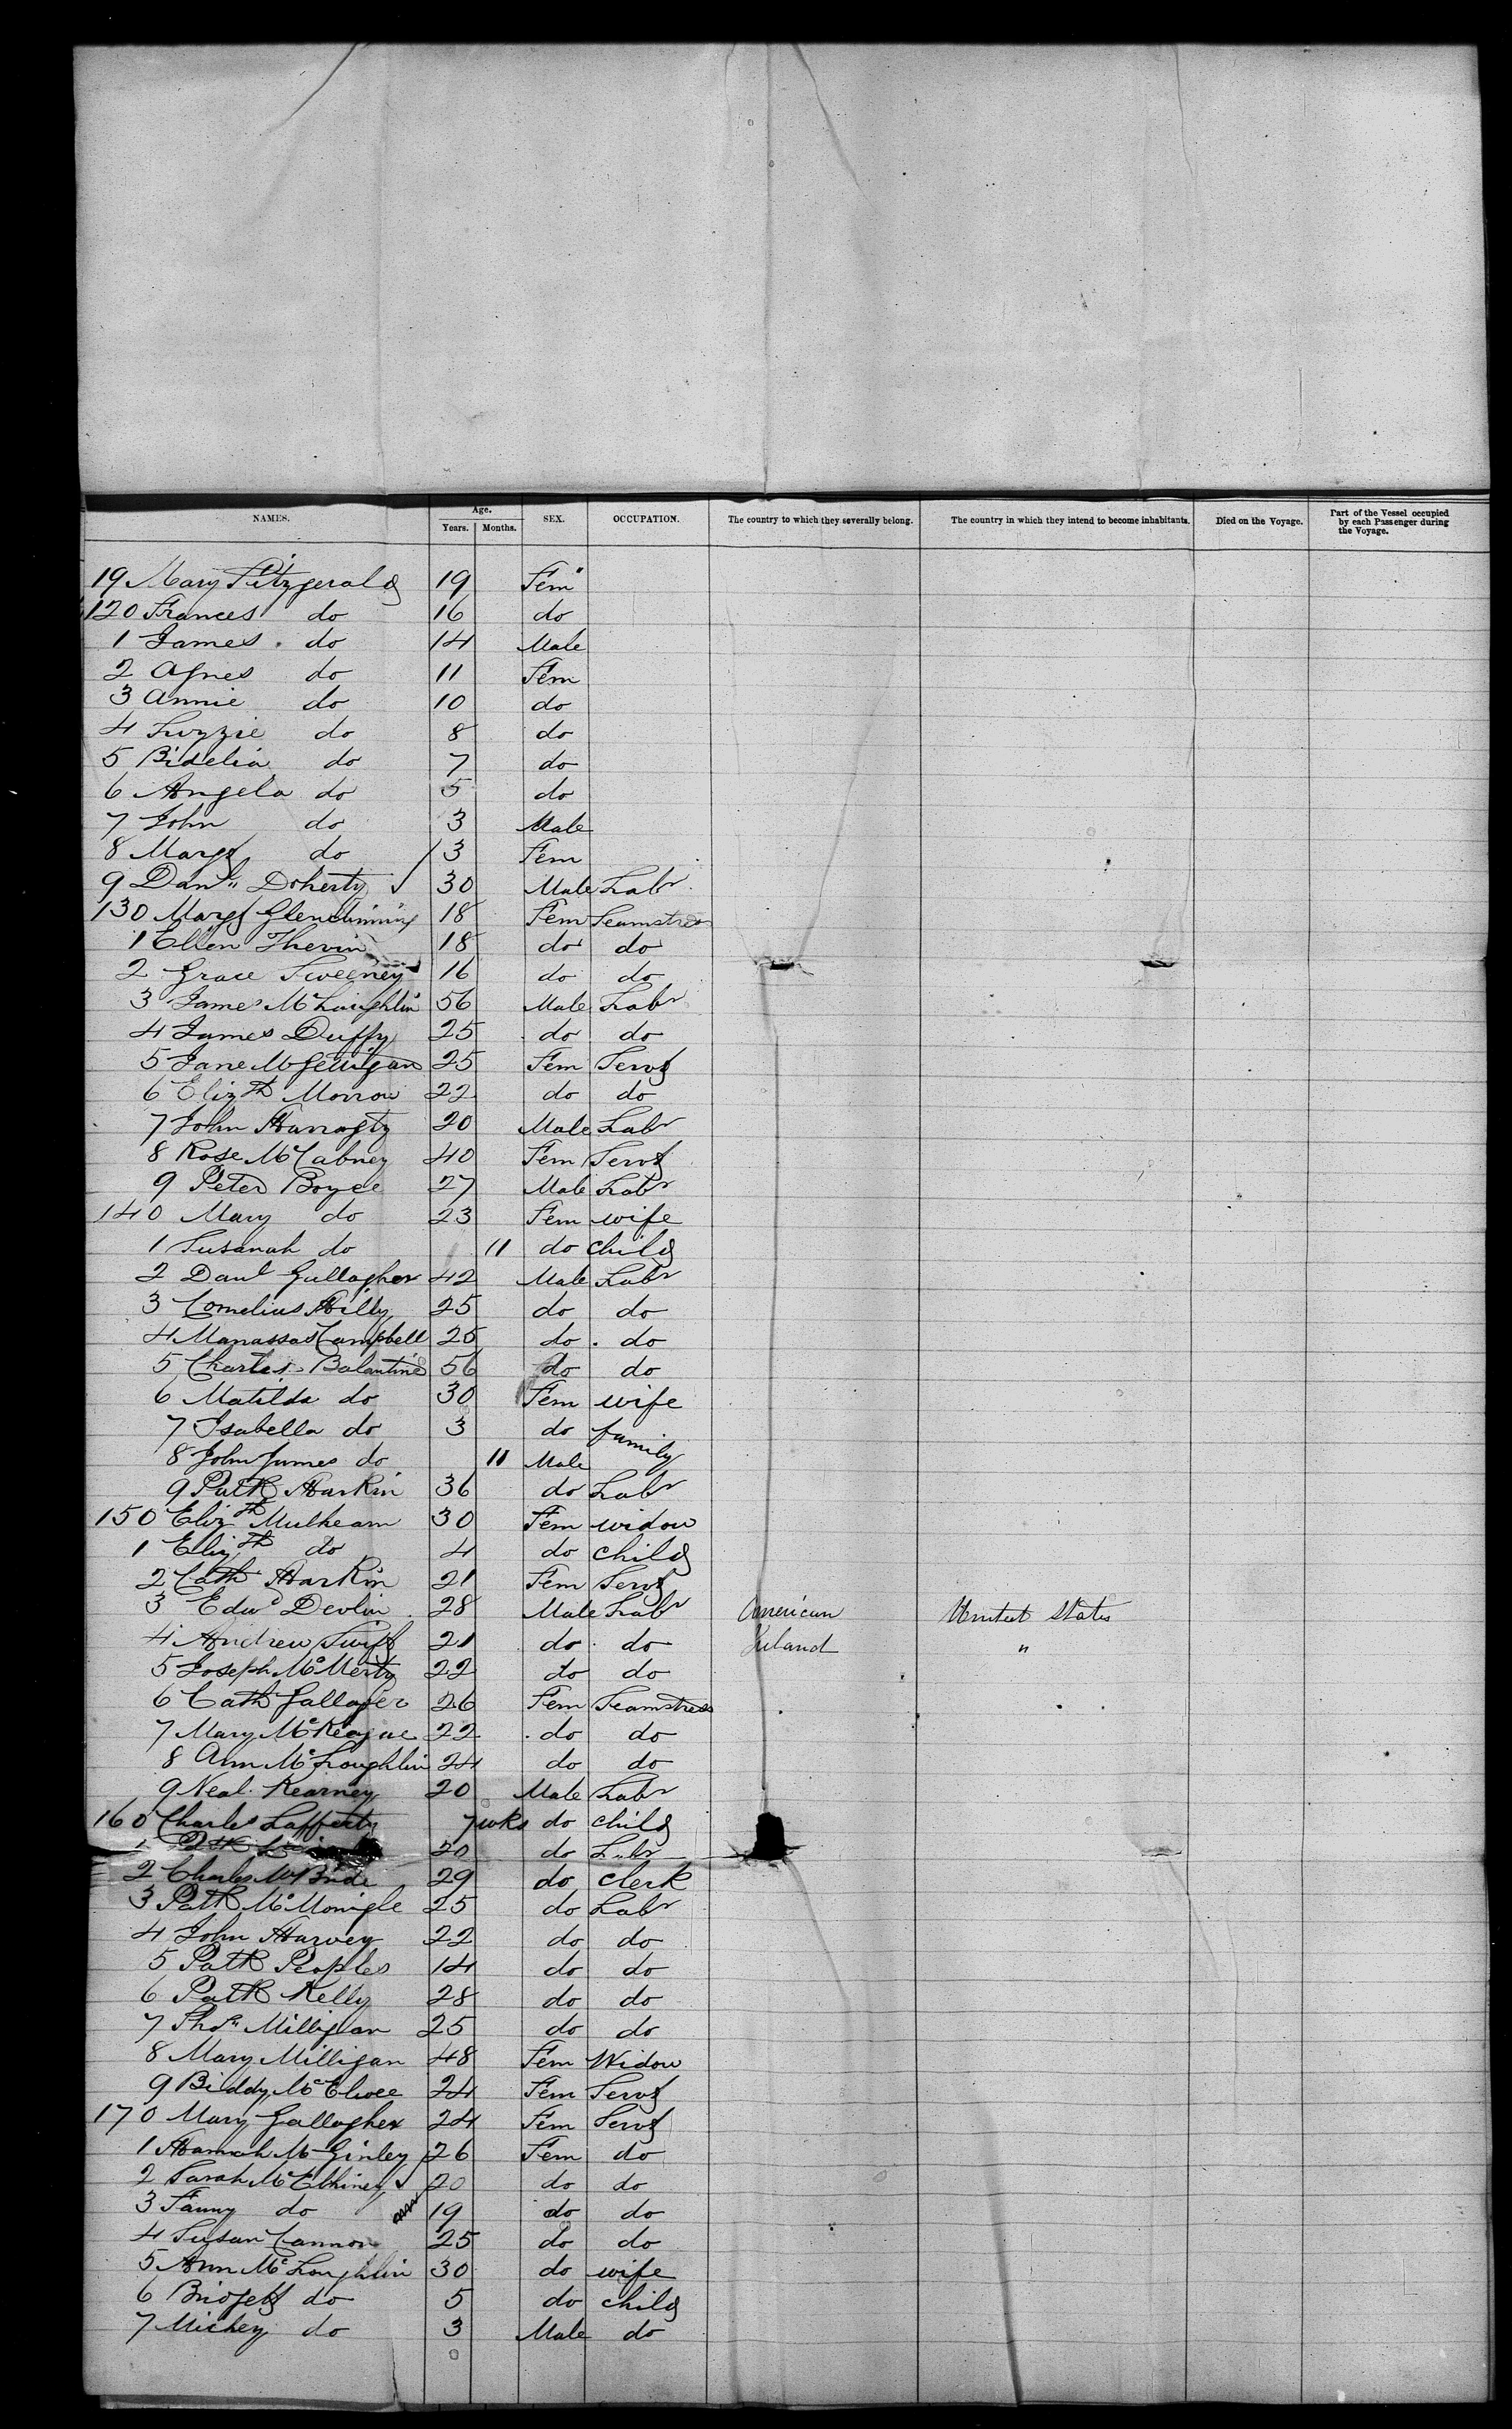 NAMES. Age. Years. Months. SEX. OCCUPATION. The country to which they severally belong. The country in which they intend to become inhabitants. Died on the Voyage. Part of the Vessel occupied by each Passenger during the Voyage.
19 Mary Fitzgerald 19 Fem
120 Frances do 16 do
1 James do 14 Male
2 Agnes do 11 Fem
3 Annie do 10 do
4 Lizzie do 8 do
5 Bidelia do 7 do
6 Angela do 5 do
7 John do 3 Male
8 Margt do 3 Fem
9 Danl Doherty 30 Male Labr
130 Margt Glendinning 18 Fem Seamstress
1 Ellen 18 do do
2 Grace Sweeney 16 do do
3 James McLaughlin 56 Male Labr
4 James Duffy 25 do do
5 Jane McGettigan 25 Fem Servt
6 Elizth Morrow 22 do do
7 John Harragty 20 Male Labr
8 Rose McCabney 40 Fem Servt
9 Peter Boyce 27 Male Labr
140 Mary do 23 Fem wife
1 Susanah do 11 do child
2 Danl Gallagher 42 Male Labr
3 Cornelius Hilly 25 do do
4 Manassas Campbell 25 do do
5 Charles Balantine 56 do do
6 Matilda do 30 Fem wife
7 Isabella do 3 do family
8 John James do 11 Male
9 Patk Harkin 36 do Labr
150 Elizth Mulhearn 30 Fem widow
1 Elizth do 4 do child
2 Cath Harkin 21 Fem Servt
3 Edwd Devlin 28 Male Labr American United States
4 Andrew Swift 21 do do Ireland "
5 Joseph McMerty 22 do do
6 Cath Gallager 26 Fem Seamstress
7 Mary McKeague 22 do do
8 Ann McLoughlin 24 do do
9 Neal Kearney 20 Male Labr
160 Charles Lafferty 7 wks do child
1 Patk 20 do Labr
2 Charles McBride 29 do clerk
3 Patk McMonigle 25 do Labr
4 John Harvey 22 do do
5 Patk Peoples 14 do do
6 Patk Kelly 28 do do
7 Thos Milligan 25 do do
8 Mary Milligan 48 Fem Widow
9 Biddy McElwee 24 Fem Servt
170 Mary Gallagher 24 Fem Servt
1 Hannah McGinley 26 Fem do
2 Sarah McElhiney 20 do do
3 Fanny do 19 do do
4 Susan Cannon 25 do do
5 Ann McLoughlin 30 do wife
6 Bridget do 5 do child
7 Mickey do 3 Male do